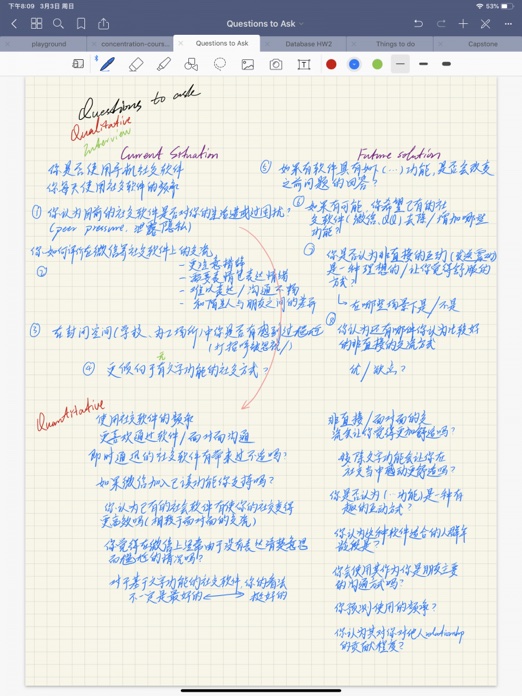 下午8:09 3月3日 周日
53%
Questions to Ask
playground
concentration-cours...
Questions to Ask
Database HW2
Things to do
Capstone
Questions to ask
Qualitative
Interview
Current Situation
你是否使用手机社交软件
你每天使用社交软件的频率
① 你认为目前的社交软件是否对你的生活造成过困扰?
(peer pressure, 泄露隐私)
你如何评价在微信等社交软件上的交流
②
- 更注意精神
- 需要表情包表达情绪
- 难以表达/沟通不畅
- 和陌生人与朋友之间的差异
③ 在封闭空间(学校、办工场所)中你是否有遇到过尴尬
(打招呼缺尴尬/)
无
④ 更倾向于有文字功能的社交方式?
Future solution
⑤ 如果有软件具有如下(...)功能,是否会改变
之前问题的回答?
⑥ 如果有可能,你希望已有的社
交软件(微信、QQ)去除/增加哪些
功能?
⑦ 你是否认为非直接的互动
是一种理想的/让你觉得舒服的
方式?
↳ 在哪些场景下是/不是
⑧ 你认为还有哪些你认为比较好
的非直接的交流方式
优/缺点?
Quantitative
使用社交软件的频率
更喜欢通过软件/面对面沟通
即时通讯的社交软件有带来过不适吗?
如果微信加入已读功能你支持吗?
你认为已有的社会软件有使你的社交变得
更高效吗(相较于面对面的交流)
你觉得在微信上经常由于没有表达清楚意思
而尴尬的情况吗?
对于基于文字功能的社交软件,你的看法
不一定是最好的 ⟷ 挺好的
非直接/面对面的交
流会让你觉得更加舒适吗?
接除文字功能会让你在
社交当中感动更舒适吗?
你是否认为(...功能)是一种有
趣的互动方式?
你认为这种软件适合的人群年
龄段是?
你会使其作为你是朋友主要
的沟通方式吗?
你预测使用的频率?
你认为其对你对他人relationship
的贡献程度?